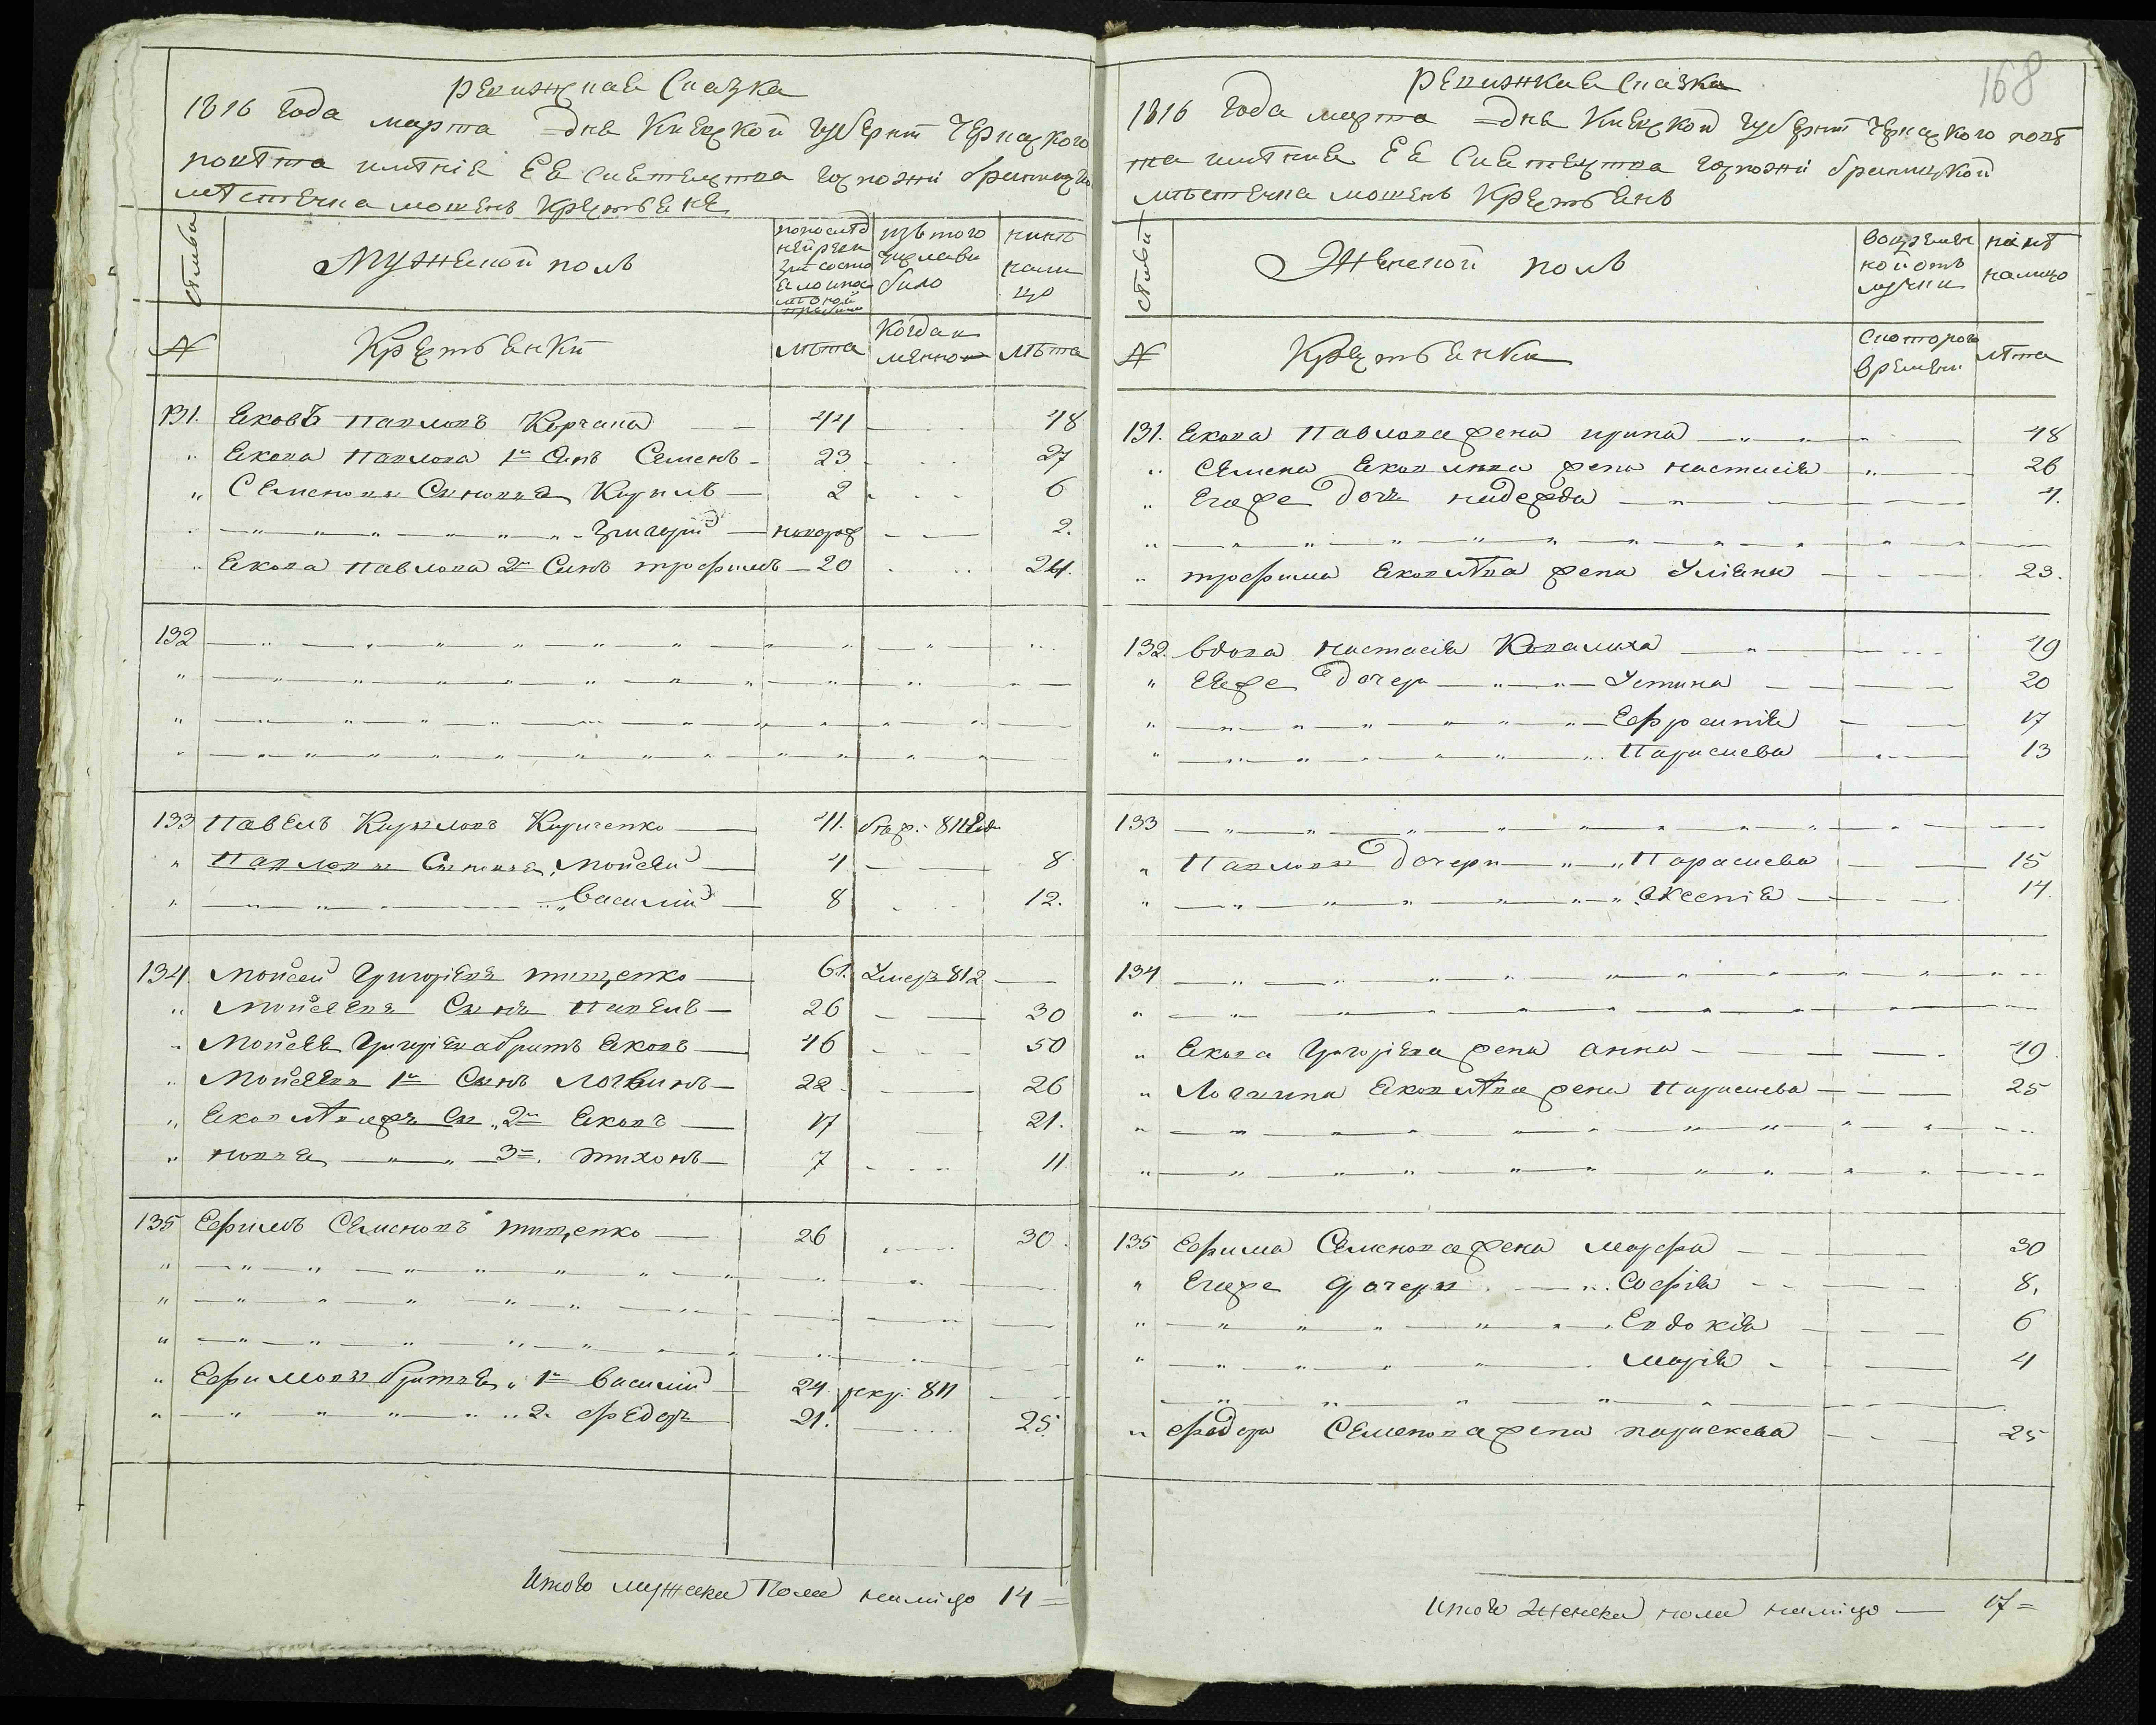 Ревижская Сказка
1816 года марта = дня Киевской губернии Черкаского
повѣта имѣнія Ея Сиятелства госпожи Браницкой
мѣстечка Мошенъ Крестьяне
Семьи
Мужеской полъ
по послѣд
ней ревизіи состояло и после
изъ того числа вы
было
нинѣ
нали
цо
№
Крестьянки
лѣта
когда и
менно
лѣта
131. Яковъ Павловъ Корчака 44 48
„ Якова Павлова 1й Синъ Семенъ 23 27
„ Семеновы Синовья Кирилъ 2 6
„ Григорій новорож 2.
„ Якова Павлова 2й Синъ Трофимъ 20 24.
132
133 Павелъ Кириловъ Кириченко 41. 811 года
„ Павловы Синовья, Мойсей 4 8
„ Василій 8 12.
134. Мойсей Григоріевъ Тищенко 61. Умеръ 812
„ Мойсеевъ Синъ Павелъ 26 30
„ Мойсея Григоріева братъ Яковъ 46 50
„ 1й Синъ Логвинъ 22 26
„ Сы „ 2й Яковъ 17 21.
„ 3й. Тихонъ 7 11
135 Ефимъ Семеновъ Тищенко 26 30.
„
„
„
„ Ефимовы братья „ 1й Василій 24. рекр: 811
„ 2й Федоръ 21. 25.
Итого мужеска пола налицо 14 =
168
Ревижская Сказка
1816 года марта = дня Киевской губернии Черкаского повѣ
та имѣния Ея Сиятелства госпожи Браницкой
мѣстечка Мошенъ Крестьянъ
Семьи
Женской полъ
во времен
ной отъ
лучки
нинѣ
налицо
№
Крестьянки
С которого
времени
лѣта
131. Якова Павлова жена Ирина 48
„ Семена Яковлева жена Настасія 26
„ Егоже дочь Надежда 4.
„
„ Трофима Яковлѣва жена Уліяна 23.
132. Вдова Настасія Ковалиха 49
„ Еяже дочери Устина 20
„ Ефросинія 17
„ Параскева 13
133
„ Павловы дочери Параскева 15
„ Аксенія 14.
134
„
„ Якова Григоріева жена Анна 49.
„ Логвина Яковлѣва жена Параскева 25
„
„
135 Ефима Семенова жена Марфа 30
„ Егоже дочери Софія 8.
„ Евдокія 6
„ Марія 4
„ Федора Семенова жена Параскева 25
Итого женска пола налицо 17 =